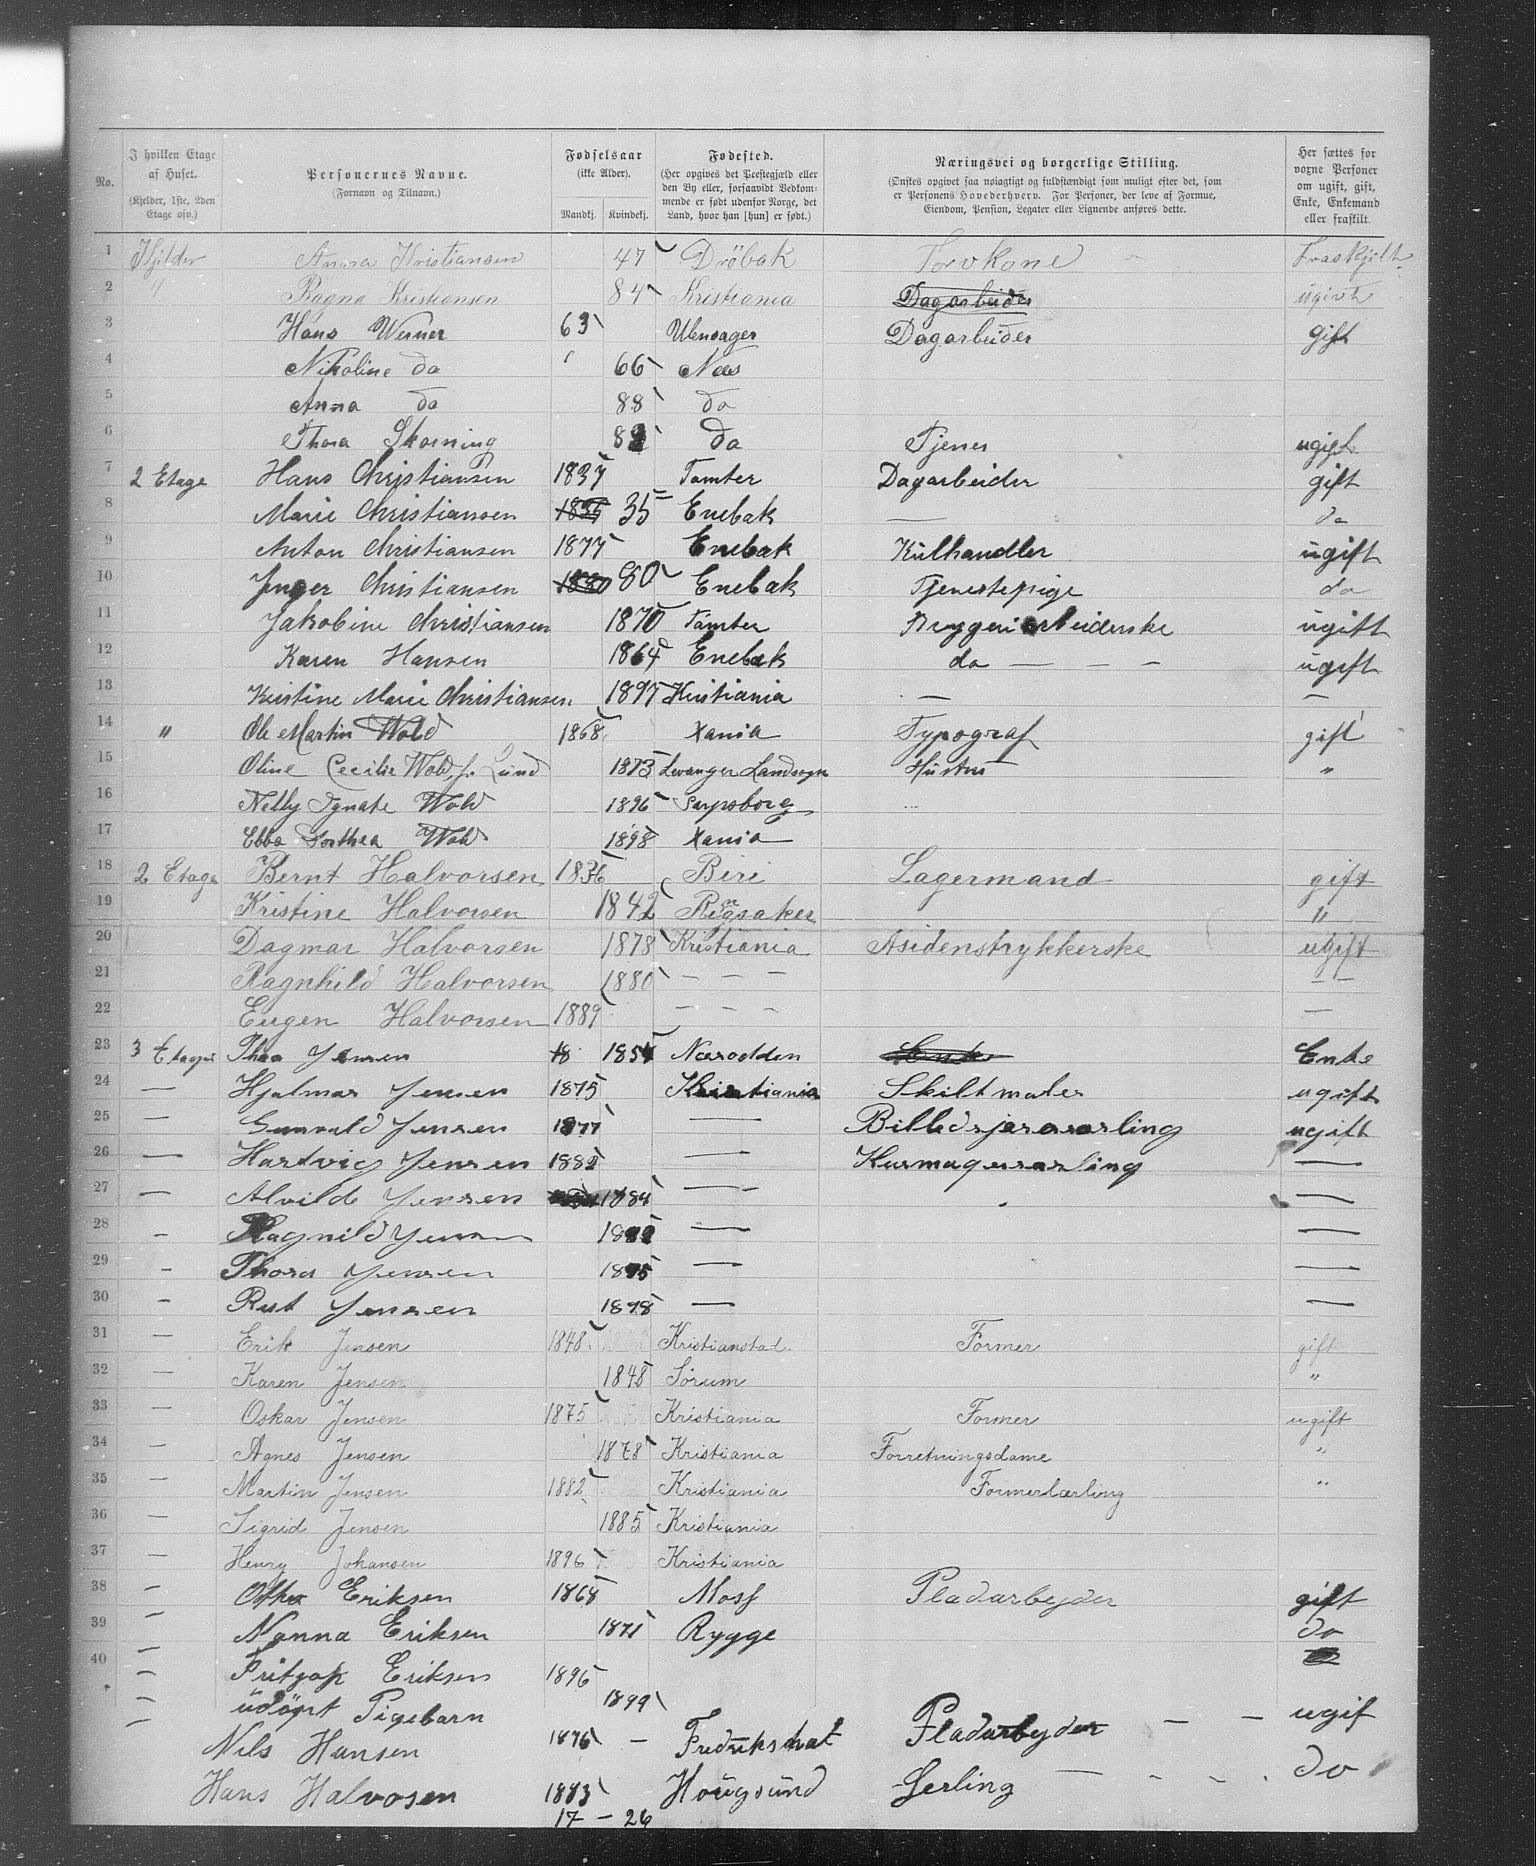 No. | I hvilken Etage af Huset. (Kjelder, 1ste, 2den Etage osv.) | Personernes Navne. (Fornavn og Tilnavn.) | Fødselsaar (ikke Alder). Mandkj. Kvindekj. | Fødested. (Her opgives det Præstegjæld eller den By eller, forsaavidt Vedkommende er født udenfor Norge, det Land, hvor han [hun] er født.) | Næringsvei og borgerlige Stilling. (Ønskes opgivet saa nøiagtigt og fuldstændigt som muligt efter det, som er Personens Hovederhverv. For Personer, der leve af Formue, Eiendom, Pension, Legater eller Lignende anføres dette. | Her sættes for voxne Personer om ugift, gift, Enke, Enkemand eller fraskilt.
1 Kjelder Anna Kristiansen 47 Dröbak Torvkone Fraskjilt
2 " Ragna Kristiansen 84 Kristiania Dagarbeider ugivt
3 Hans Werner 63 Ulensager Dagarbeider gift
4 Nikoline do 66 Næs
5 Anna do 88 do
6 Thora Skorning 82 do Tjener ugift
7 2 Etage Hans Christiansen 1837 Tomter Dagarbeider gift
8 Marie Christiansen 1835 35 Enebak — do
9 Anton Christiansen 1877 Enebak Kulhandler ugift
10 Jnger Christiansen 1880 80 Enebak Tjenestepige do
11 Jakobine Christiansen 1870 Tomter Bryggeriarbeiderske ugift
12 Karen Hansen 1864 Enebak do — — — ugift
13 Kristine Marie Christiansen 1897 Kristiania — —
14 " Ole Martin Wold 1868 Xania Typograf gift
15 Oline Cecilie Wold, f. Lund 1873 Levanger Landsogn Hustru "
16 Nelly Agnate Wold 1896 Sarpsborg
17 Ebba Dorthea Wold 1898 Xania
18 2 Etage Bernt Halvorsen 1836 Biri Lagermand gift
19 Kristine Halvorsen 1842 Ringsaker "
20 Dagmar Halvorsen 1878 Kristiania Asidenstrykkerske ugift
21 Ragnhild Halvorsen 1880 — — — — —
22 Eugen Halvorsen 1889 — — — —
23 3 Etage Thea Jensen 18 1854 Næsodden Enke Enke
24 — Hjalmar Jensen 1875 Kristiania Skiltmaler ugift
25 — Gunvald Jensen 1877 — Billedsjærerlærling ugift
26 — Hartvig Jensen 1882 — Kurmagerlærling —
27 — Alvilde Jensen 1884 — —
28 - Ragnild Jensen 1892 — —
29 - Thora Jensen 1895 — —
30 - Rut Jensen 1898 — —
31 — Erik Jensen 1848 Kristianstad Former gift
32 — Karen Jensen 1848 Sørum "
33 — Oskar Jensen 1875 Kristiania Former ugift
34 — Agnes Jensen 1878 Kristiania Forretningsdame "
35 — Martin Jensen 1882 Kristiania Formerlærling "
36 — Sigrid Jensen 1885 Kristiania
37 — Henry Johansen 1896 Kristiania
38 — Eriksen 1868 Moss Pladarbejder gift
39 — Nanna Eriksen 1871 Rygge do
40 — Fritjof Eriksen 1896
— udöpt Pigebarn 1899
— Nils Hansen 1876 — Fredrikshal Pladarbejder — — ugif
Hans Halvosen 1883 Hougsund Lerling — - - - do
17 - 26